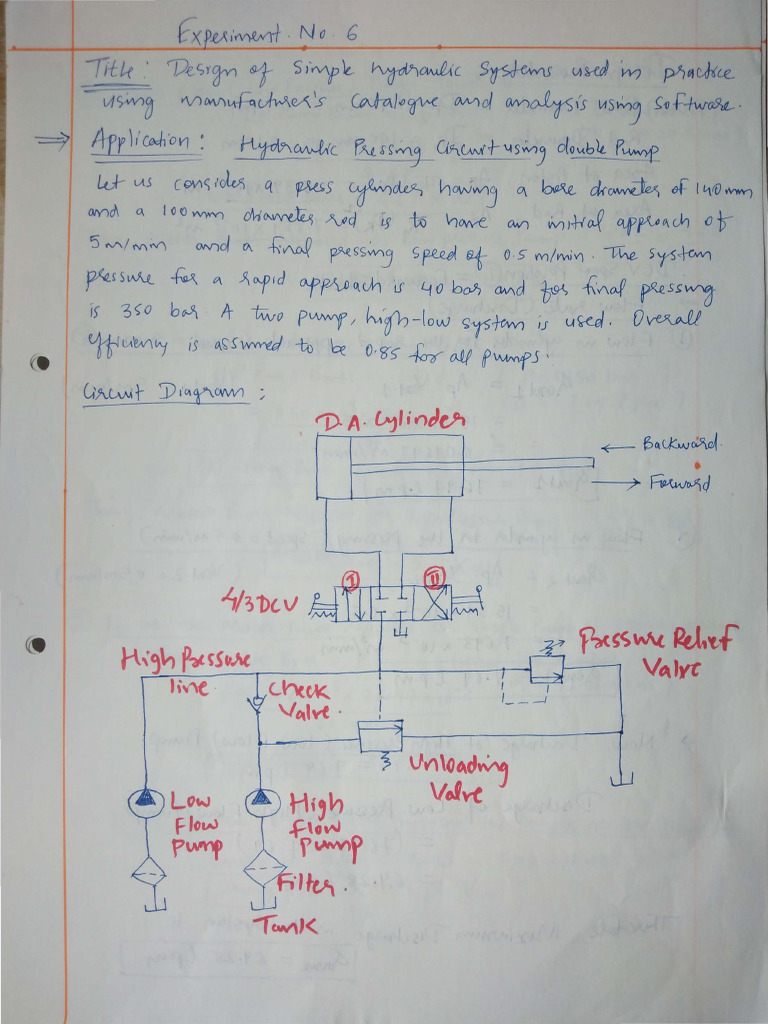 Experiment. No. 6
Title: Design of Simple hydraulic systems used in practice
using manufacturer's catalogue and analysis using software.
⇒ Application: Hydraulic Pressing Circuit using double Pump
Let us consider a press cylinder having a bore diameter of 140mm
and a 100mm diameter rod is to have an initial approach of
5m/mm and a final pressing speed of 0.5 m/min. The system
pressure for a rapid approach is 40 bar and for final pressing
is 350 bar A two pump, high-low system is used. Overall
efficiency is assumed to be 0.85 for all pumps.
Circuit Diagram :
D.A. Cylinder
← Backward.
→ Forward
I
II
4/3 DCV
High Pressure
line
Pressure Relief
Valve
Check
Valve.
Unloading
Valve
Low
Flow
Pump
High
flow
pump
Filter.
Tank